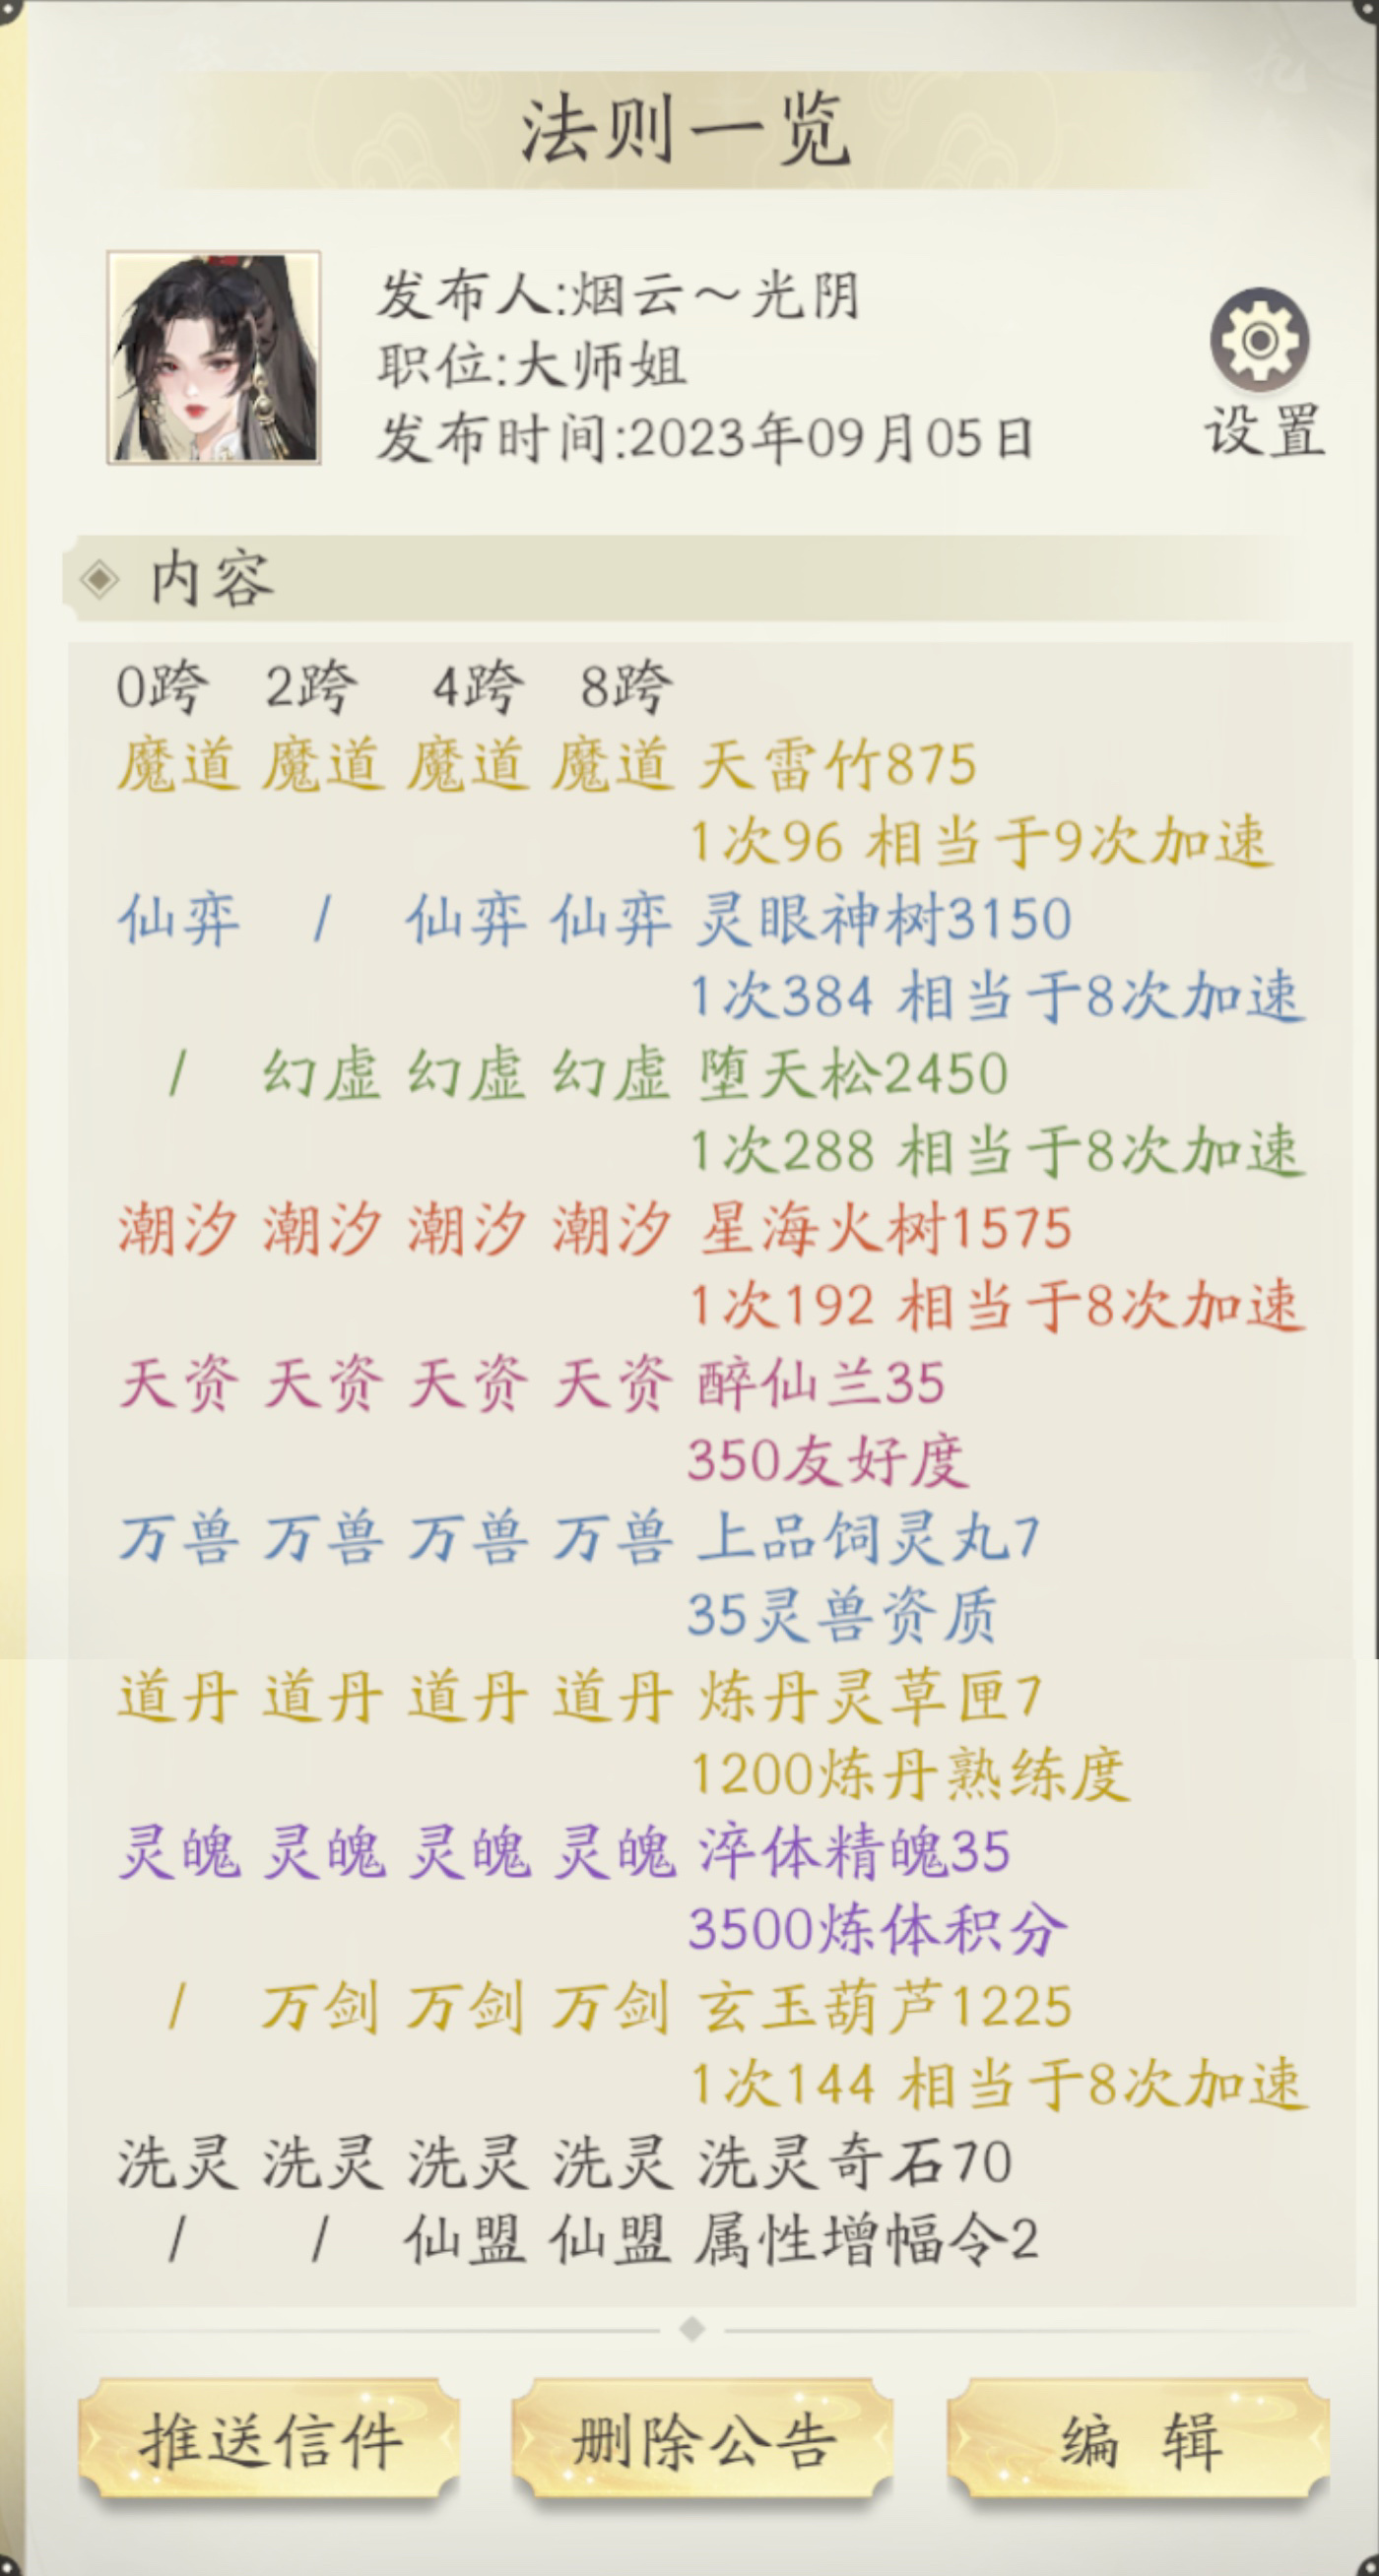 法则一览
发布人:烟云～光阴
职位:大师姐
发布时间:2023年09月05日
设置
内容
0跨 2跨 4跨 8跨
魔道 魔道 魔道 魔道 天雷竹875
1次96 相当于9次加速
仙弈 / 仙弈 仙弈 灵眼神树3150
1次384 相当于8次加速
/ 幻虚 幻虚 幻虚 堕天松2450
1次288 相当于8次加速
潮汐 潮汐 潮汐 潮汐 星海火树1575
1次192 相当于8次加速
天资 天资 天资 天资 醉仙兰35
350友好度
万兽 万兽 万兽 万兽 上品饲灵丸7
35灵兽资质
道丹 道丹 道丹 道丹 炼丹灵草匣7
1200炼丹熟练度
灵魄 灵魄 灵魄 灵魄 淬体精魄35
3500炼体积分
/ 万剑 万剑 万剑 玄玉葫芦1225
1次144 相当于8次加速
洗灵 洗灵 洗灵 洗灵 洗灵奇石70
/ / 仙盟 仙盟 属性增幅令2
推送信件 删除公告 编 辑